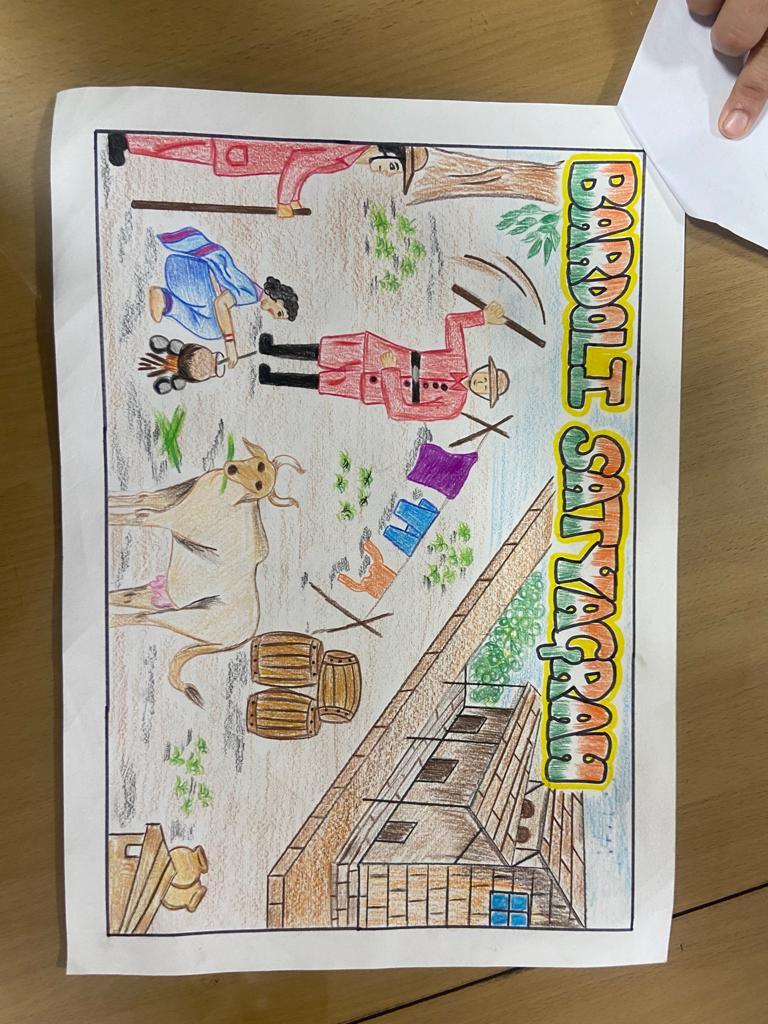 BARDOLI SATYAGRAH